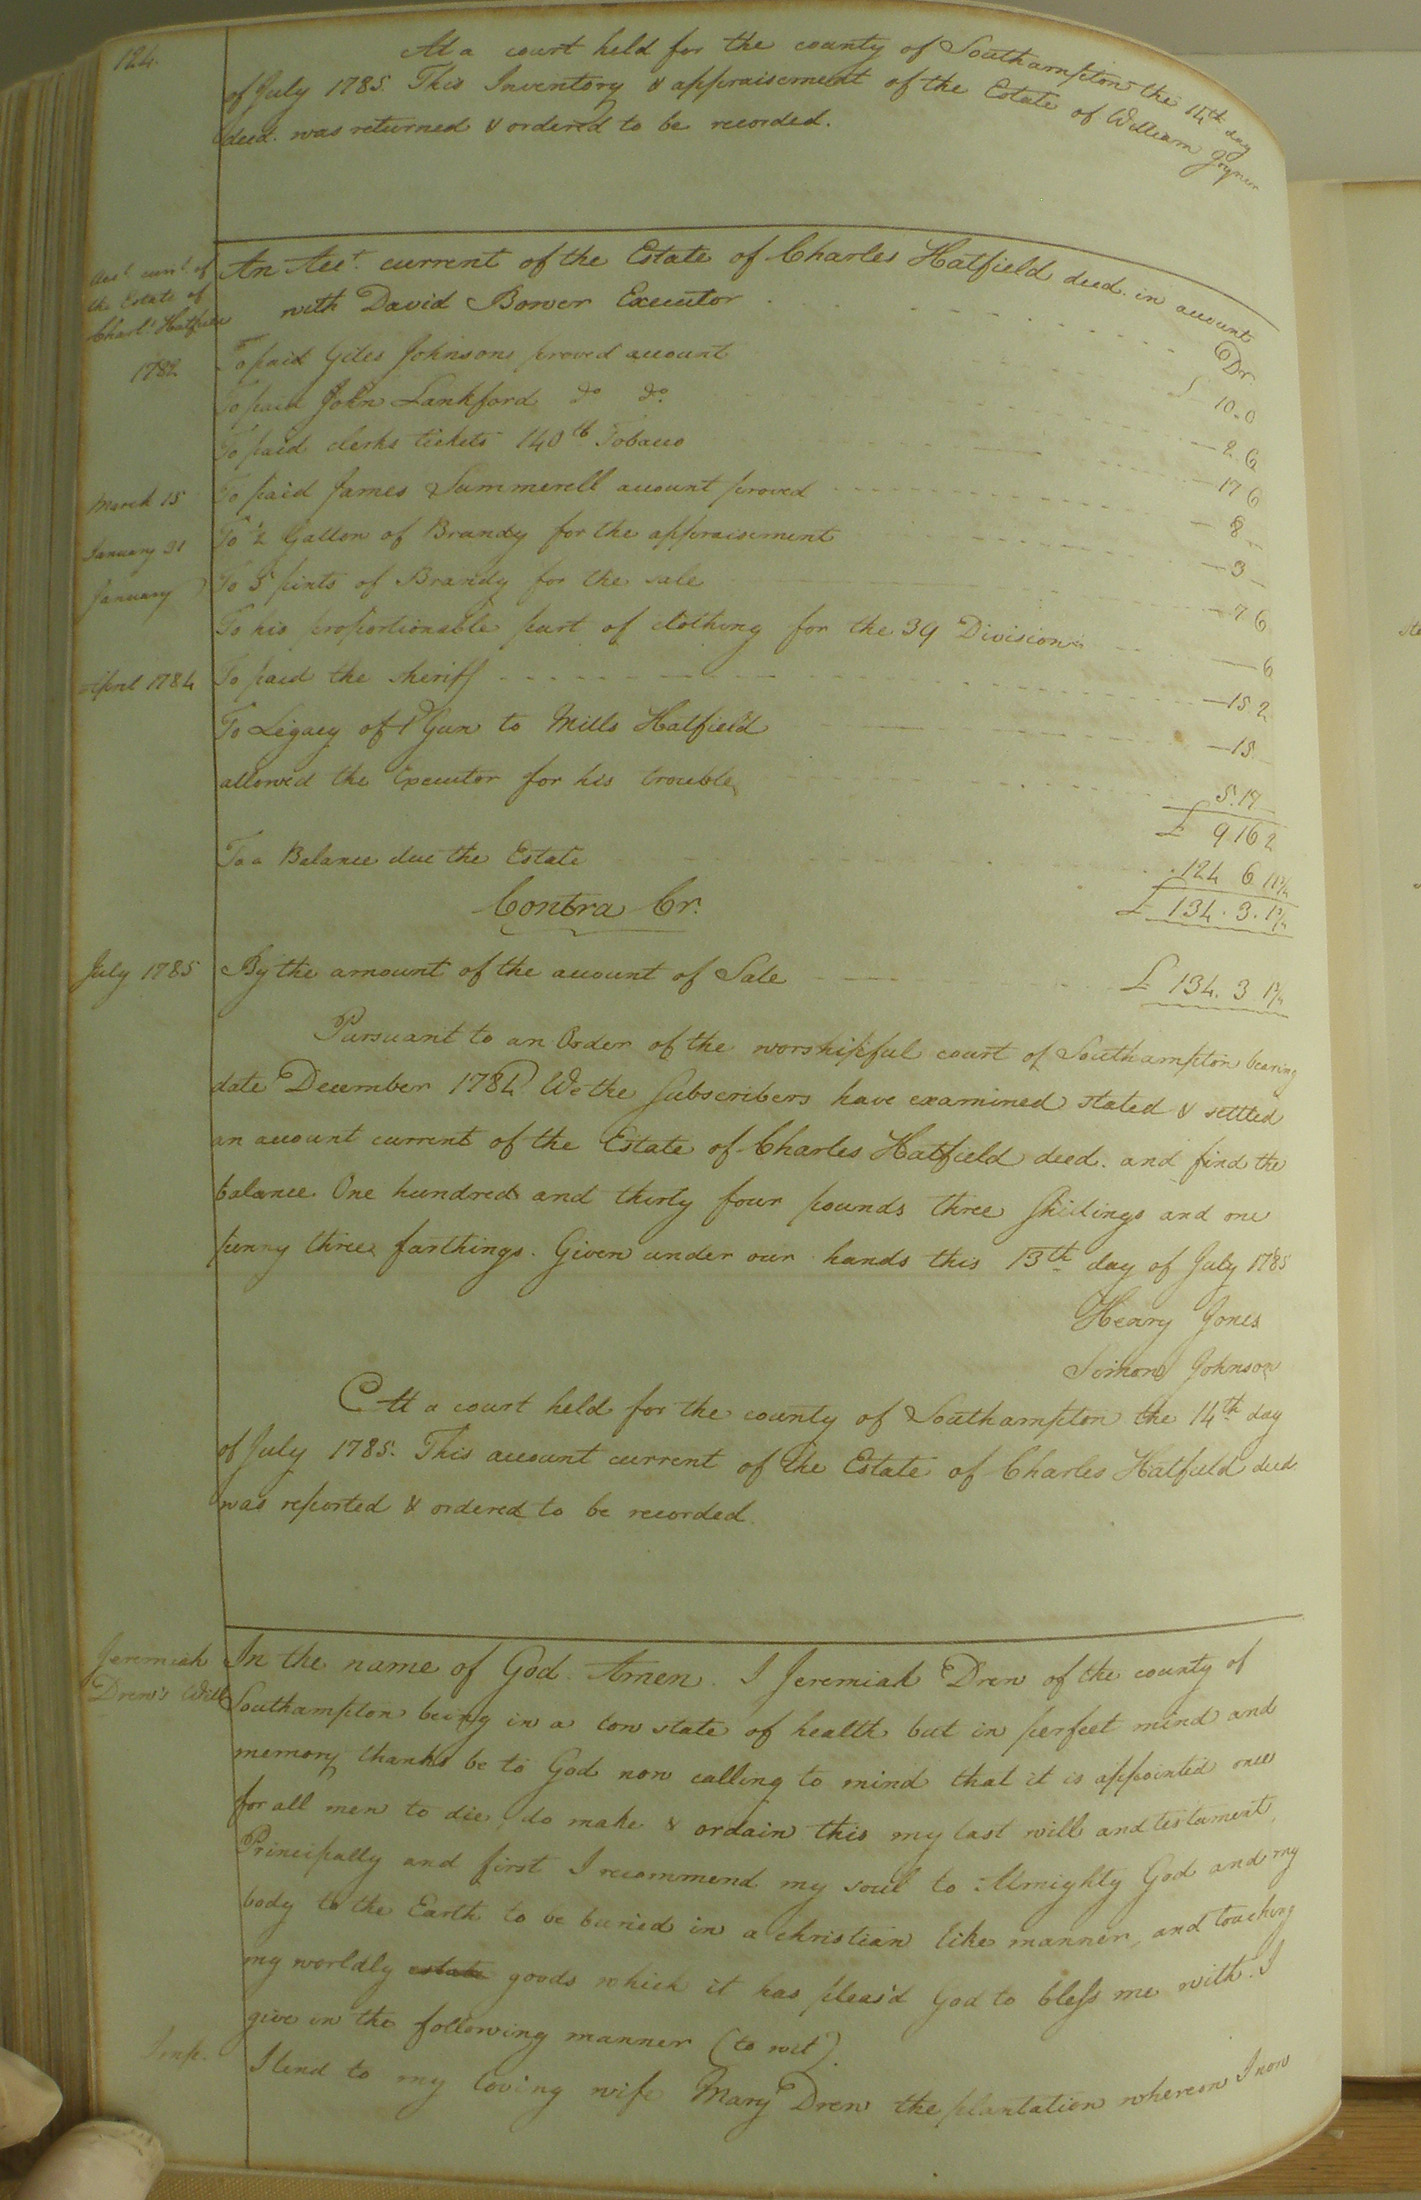 124.
At a court held for the county of Southampton the 14th day
of July 1785. This Inventory & appraisement of the Estate of William Joyner
decd. was returned & ordered to be recorded.
Acct. currt. of
the Estate of
Charls. Hatfield
An Acct. current of the Estate of Charles Hatfield decd. in account
with David Bower Executor
Dr
1782
To paid Giles Johnsons proved account £ 10.0
To paid John Lankford do do. 2 6
To paid clerks tickets 140 lb Tobacco 17 6
March 15 To paid James Summerell account proved 8
January 31 To ½ Gallon of Brandy for the appraisement 3
January To 5 pints of Brandy for the sale 7 6
To his proportionable part of clothing for the 39 Division 6
April 1784 To paid the sheriff 15 2
To Legacy of 1 Gun to Mills Hatfield 15
allowed the Executor for his trouble 5.17
£ 9 16 2
To a Balance due the Estate 124 6 11¾
£ 134.3.1¾
Contra Cr.
July 1785 By the amount of the account of Sale £ 134.3 1¾
Pursuant to an Order of the worshipful court of Southampton bearing
date December 1784 We the Subscribers have examined stated & settled
an account current of the Estate of Charles Hatfield decd. and find the
balance One hundred and thirty four pounds three shillings and one
penny three farthings. Given under our hands this 13th day of July 1785
Henry Jones
Simon Johnson
At a court held for the county of Southampton the 14th day
of July 1785. This account current of the Estate of Charles Hatfield decd
was reported & ordered to be recorded.
Jeremiah
Drew's Will
In the name of God Amen. I Jeremiah Drew of the county of
Southampton being in a low state of health but in perfect mind and
memory thanks be to God now calling to mind that it is appointed once
for all men to die, do make & ordain this my last will and testament,
Principally and first I recommend my soul to Almighty God and my
body to the Earth to be buried in a christian like manner, and touching
my worldly estate goods which it has pleas'd God to bless me with. I
give in the following manner (to wit).
Imp. I lend to my loving wife Mary Drew the plantation whereon I now